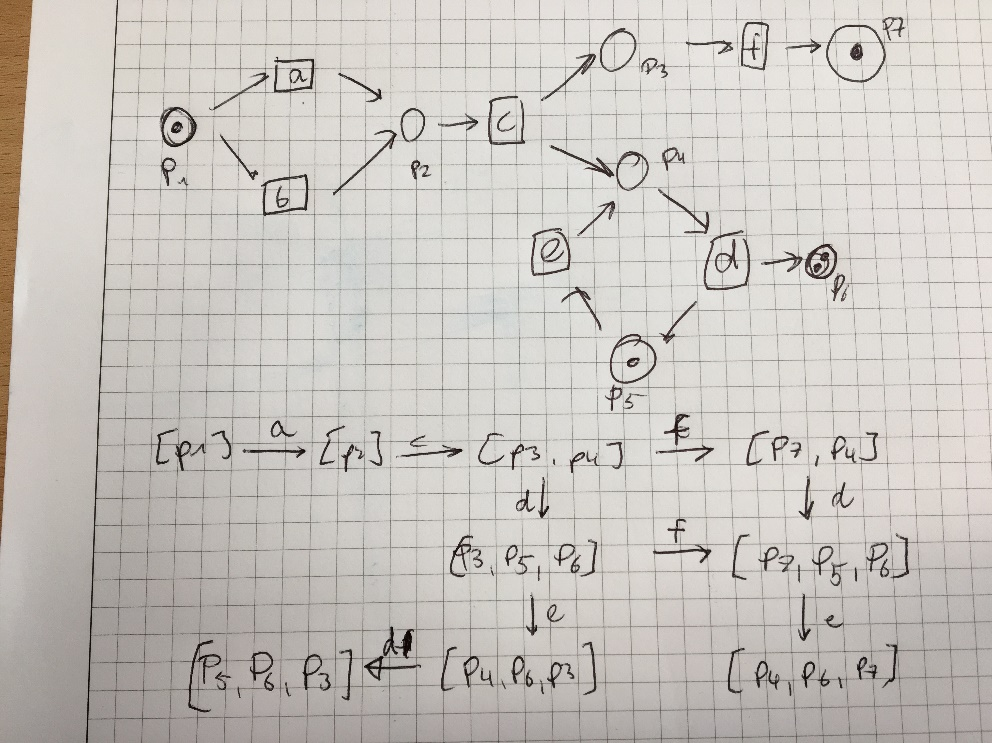 p3 f p7
a
c
p1 p2 p4
b
e d
p6
p5
[p1] a [p2] c [p3, p4] f [p7, p4]
d d
[p3, p5, p6] f [p7, p5, p6]
e e
[p5, p6, p3] d [p4, p6, p3] [p4, p6, p7]